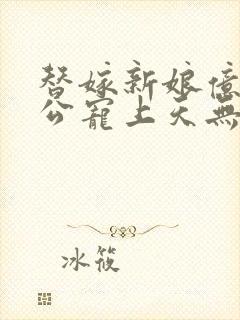 替嫁新娘億
公寵上天無
冰筱